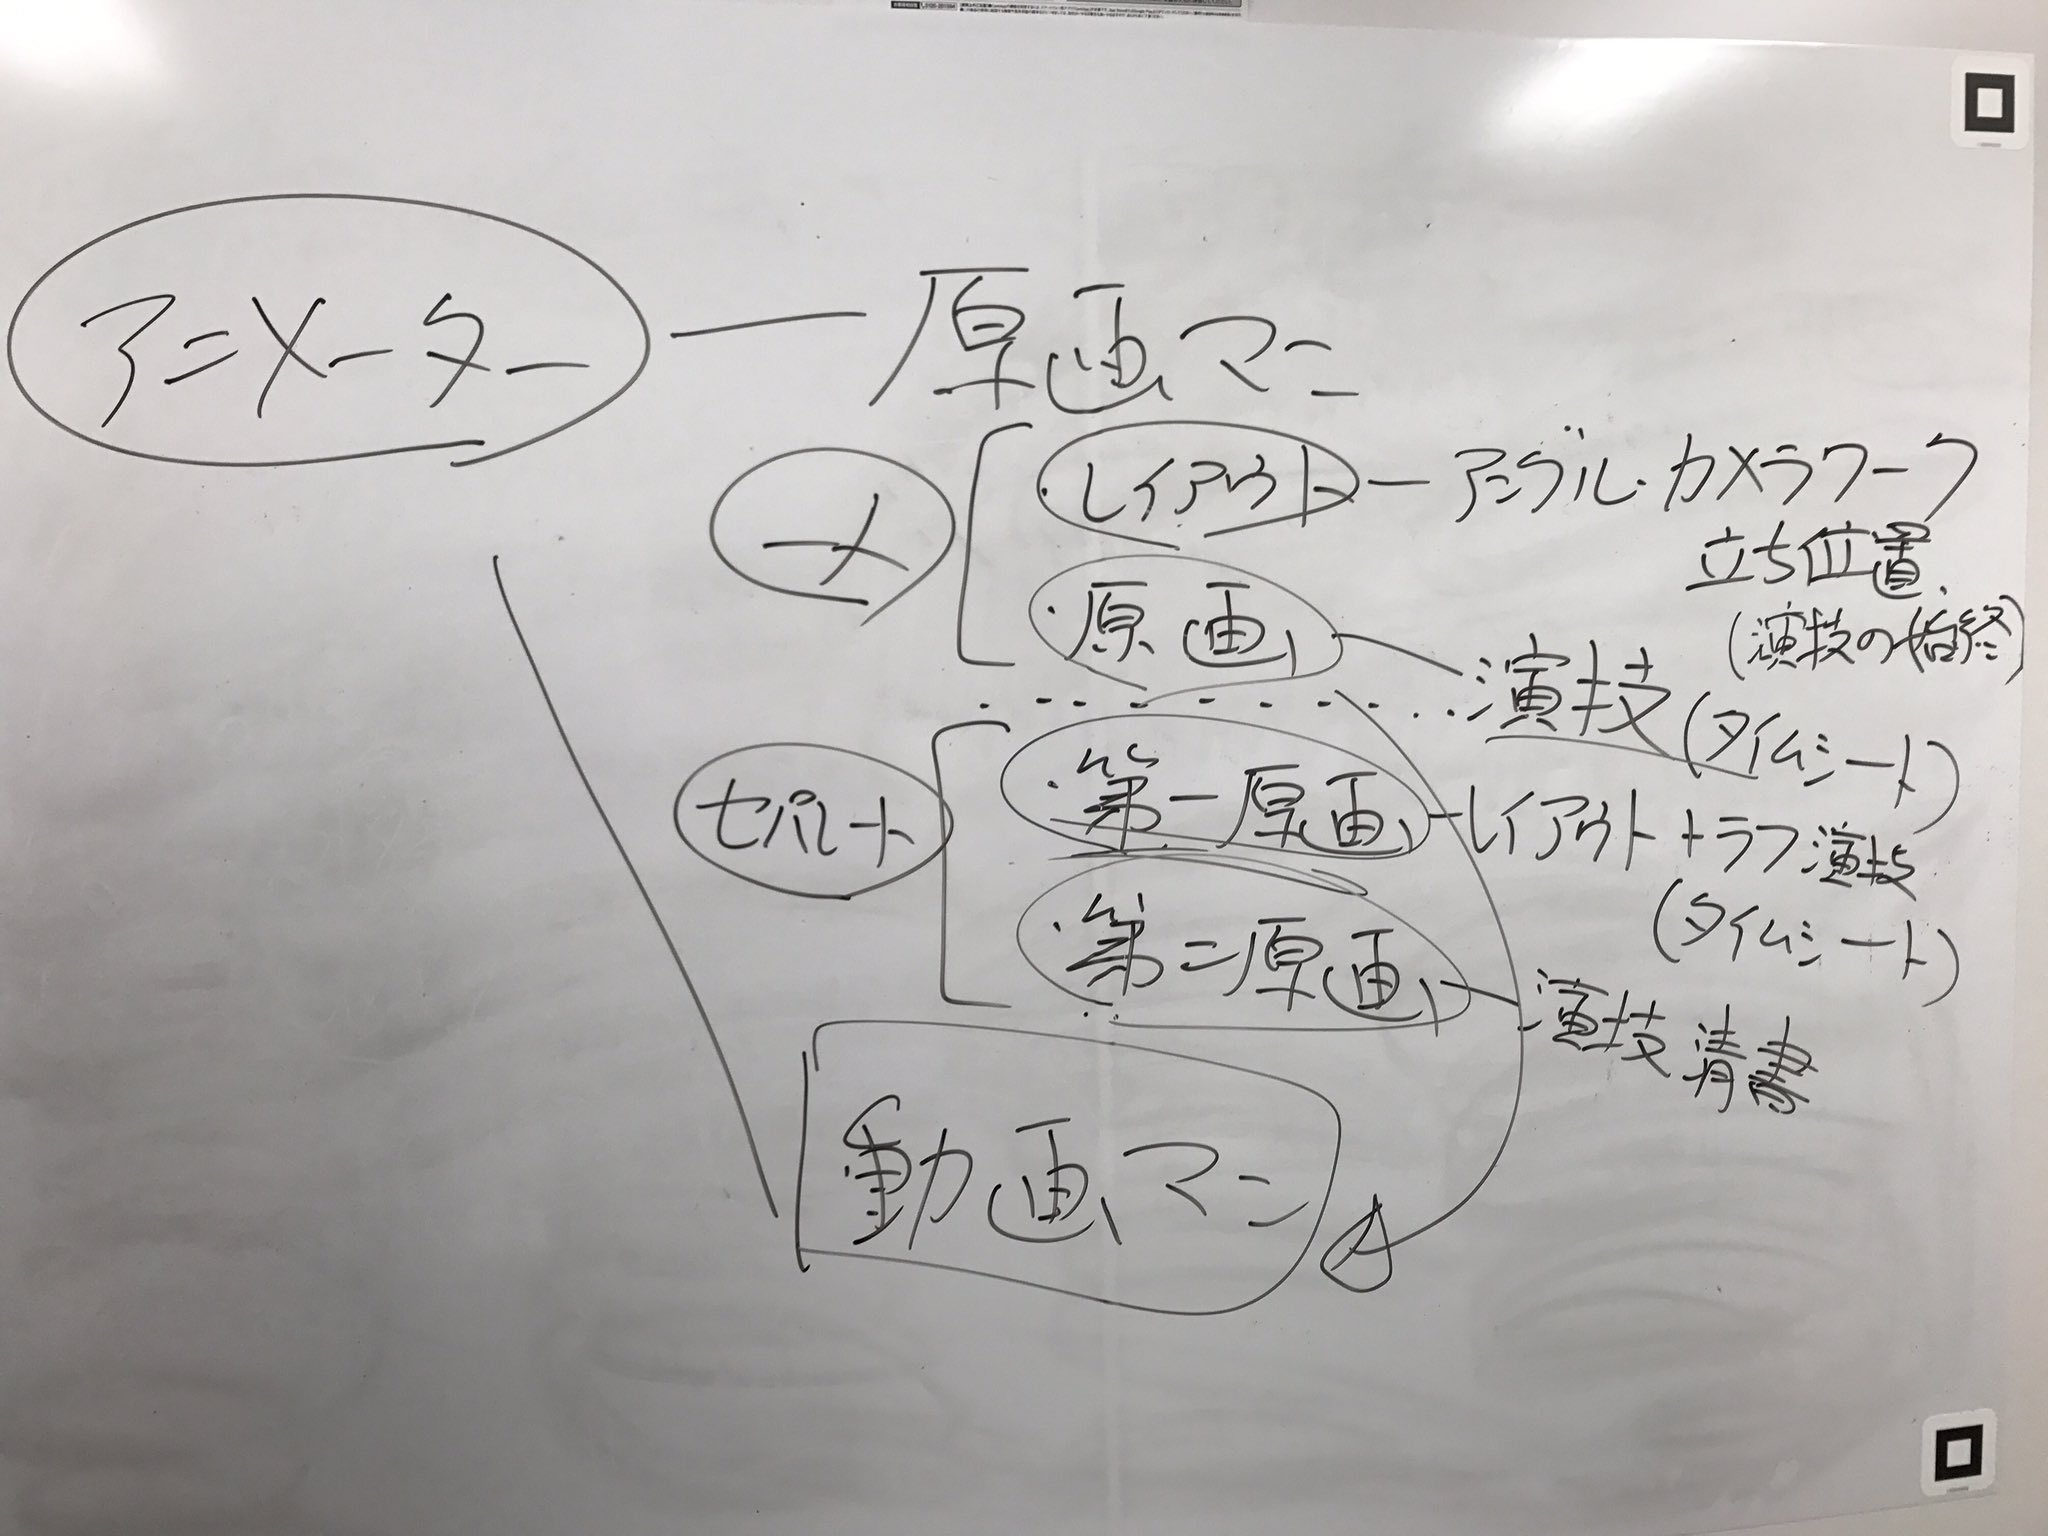 アニメーター ー 原画マン
一メ
・レイアウト ー アングル・カメラワーク
立ち位置、
(演技の始終)
・原画
演技(タイムシート)
セパレート
・第一原画 ー レイアウト+ラフ演技
(タイムシート)
・第二原画
演技 清書
動画マン